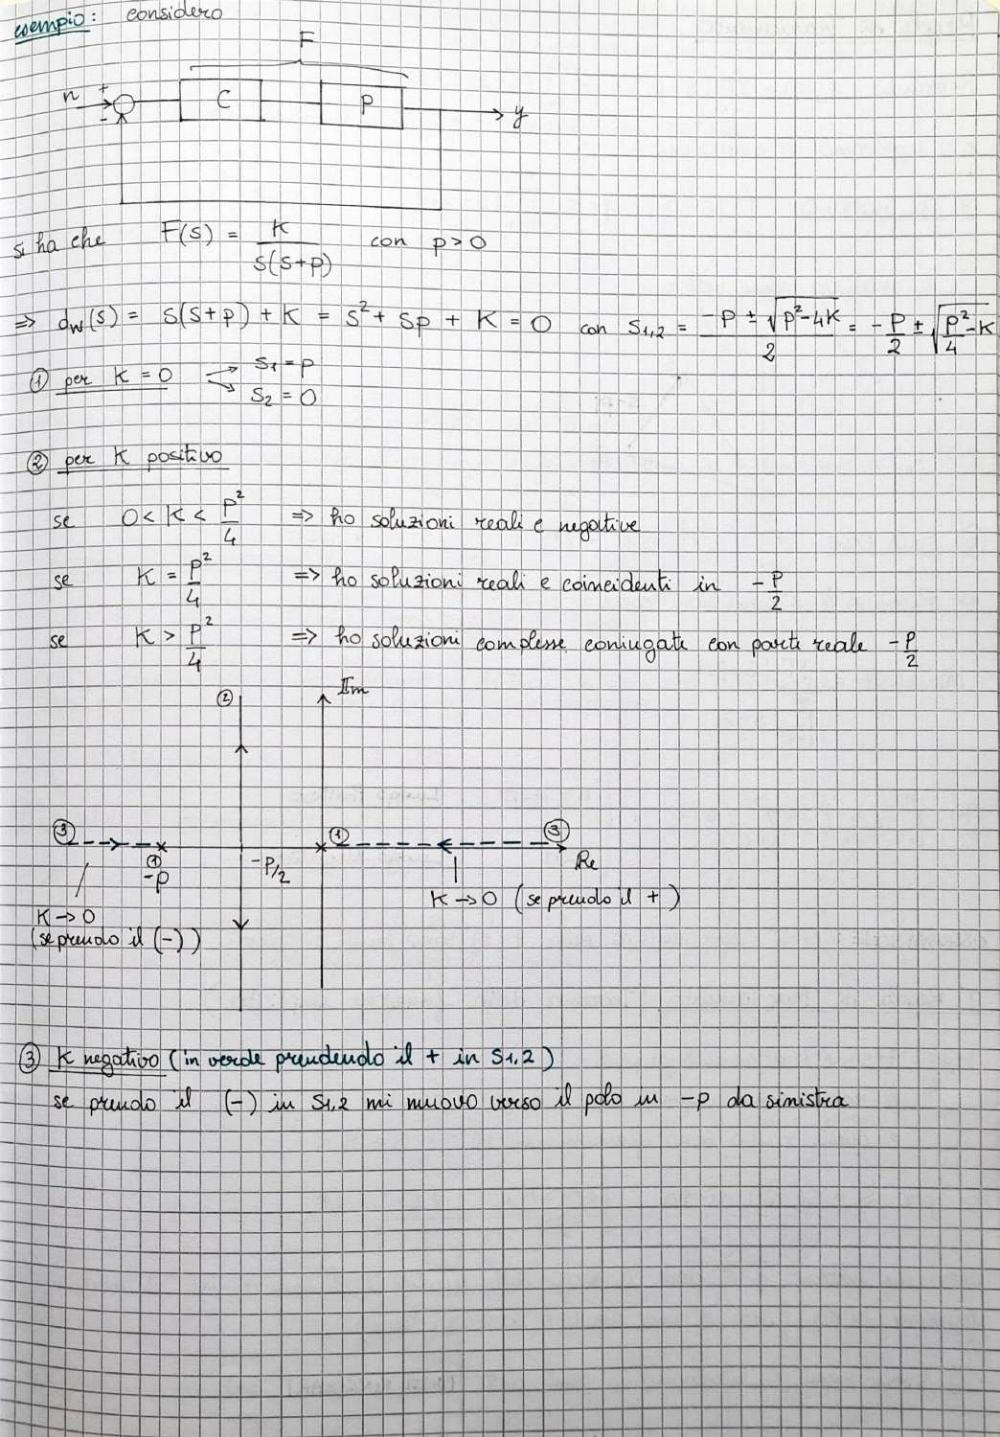 esempio: considero
F
r + - C P y
si ha che F(s) = K / s(s+p) con p>0
=> dw(s) = s(s+p) + K = s² + sp + K = 0 con s1,2 = (-p ± √(p²-4K)) / 2 = -p/2 ± √(p²/4 - K)
① per K = 0 → s1 = p
→ s2 = 0
② per K positivo
se 0 < K < p²/4 => ho soluzioni reali e negative
se K = p²/4 => ho soluzioni reali e coincidenti in -p/2
se K > p²/4 => ho soluzioni complesse coniugate con parte reale -p/2
② Im
③ ① ③
① -p -p/2 Re
K→0 (se prendo il +)
K→0
(se prendo il (-))
③ K negativo (in verde prendendo il + in s1,2)
se prendo il (-) in s1,2 mi muovo verso il polo in -p da sinistra